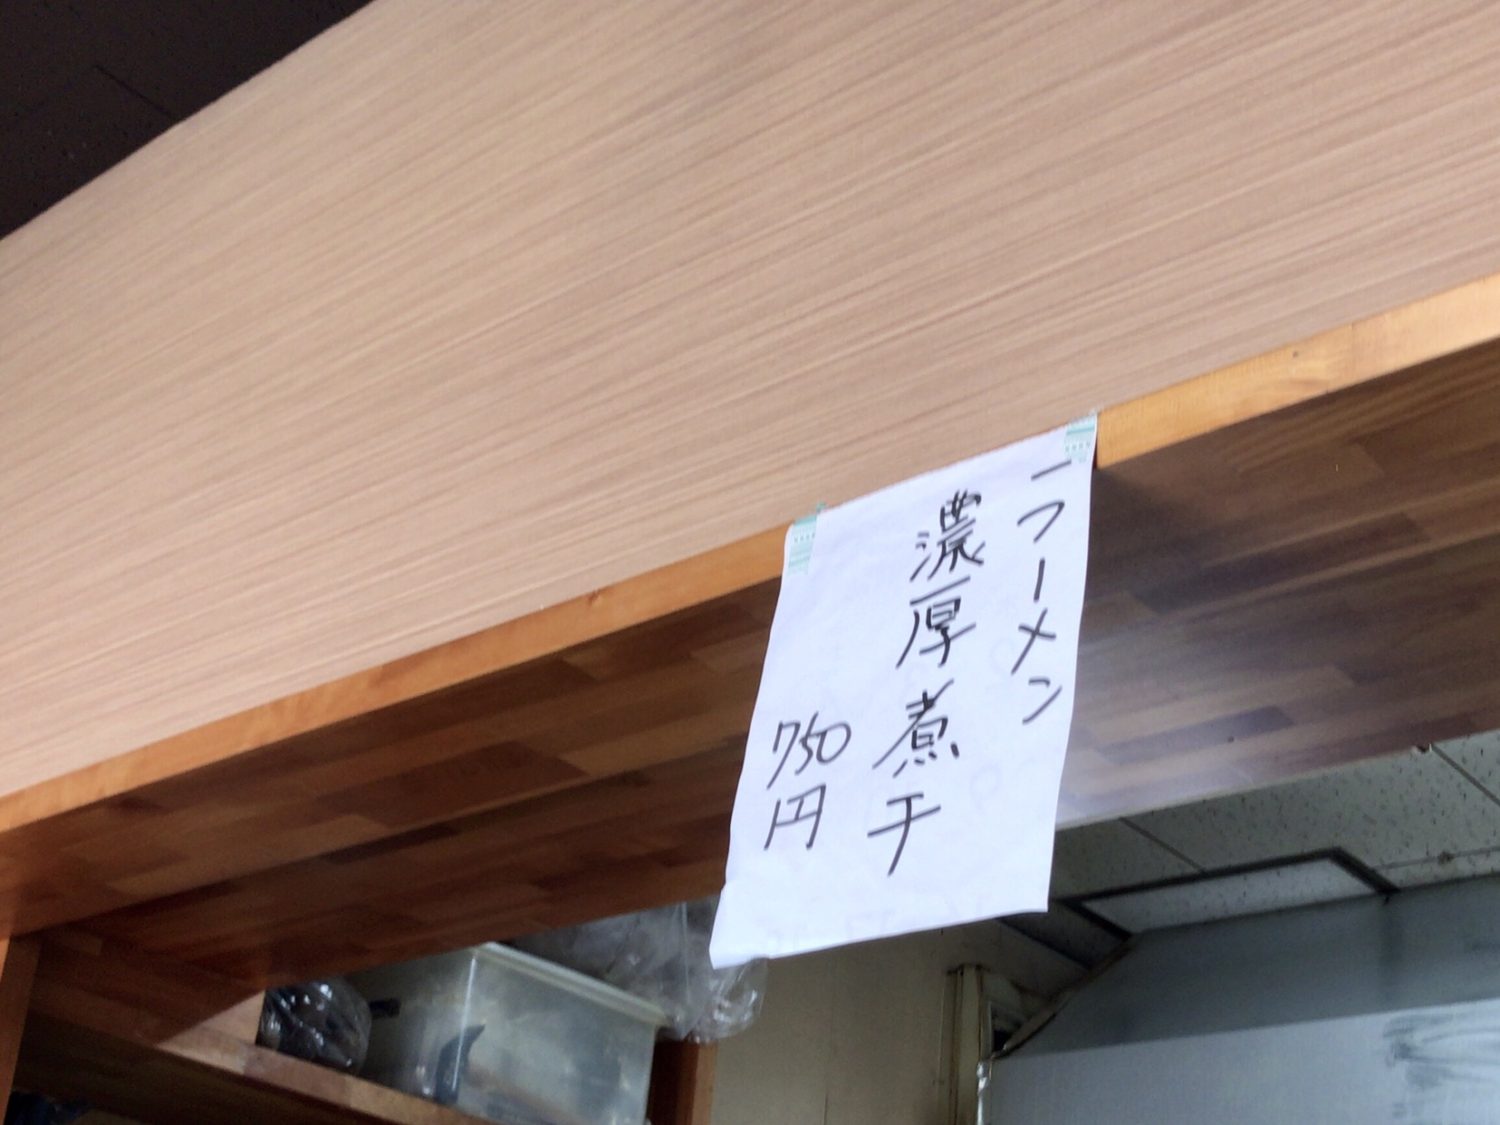 ラーメン
濃厚煮干
750円